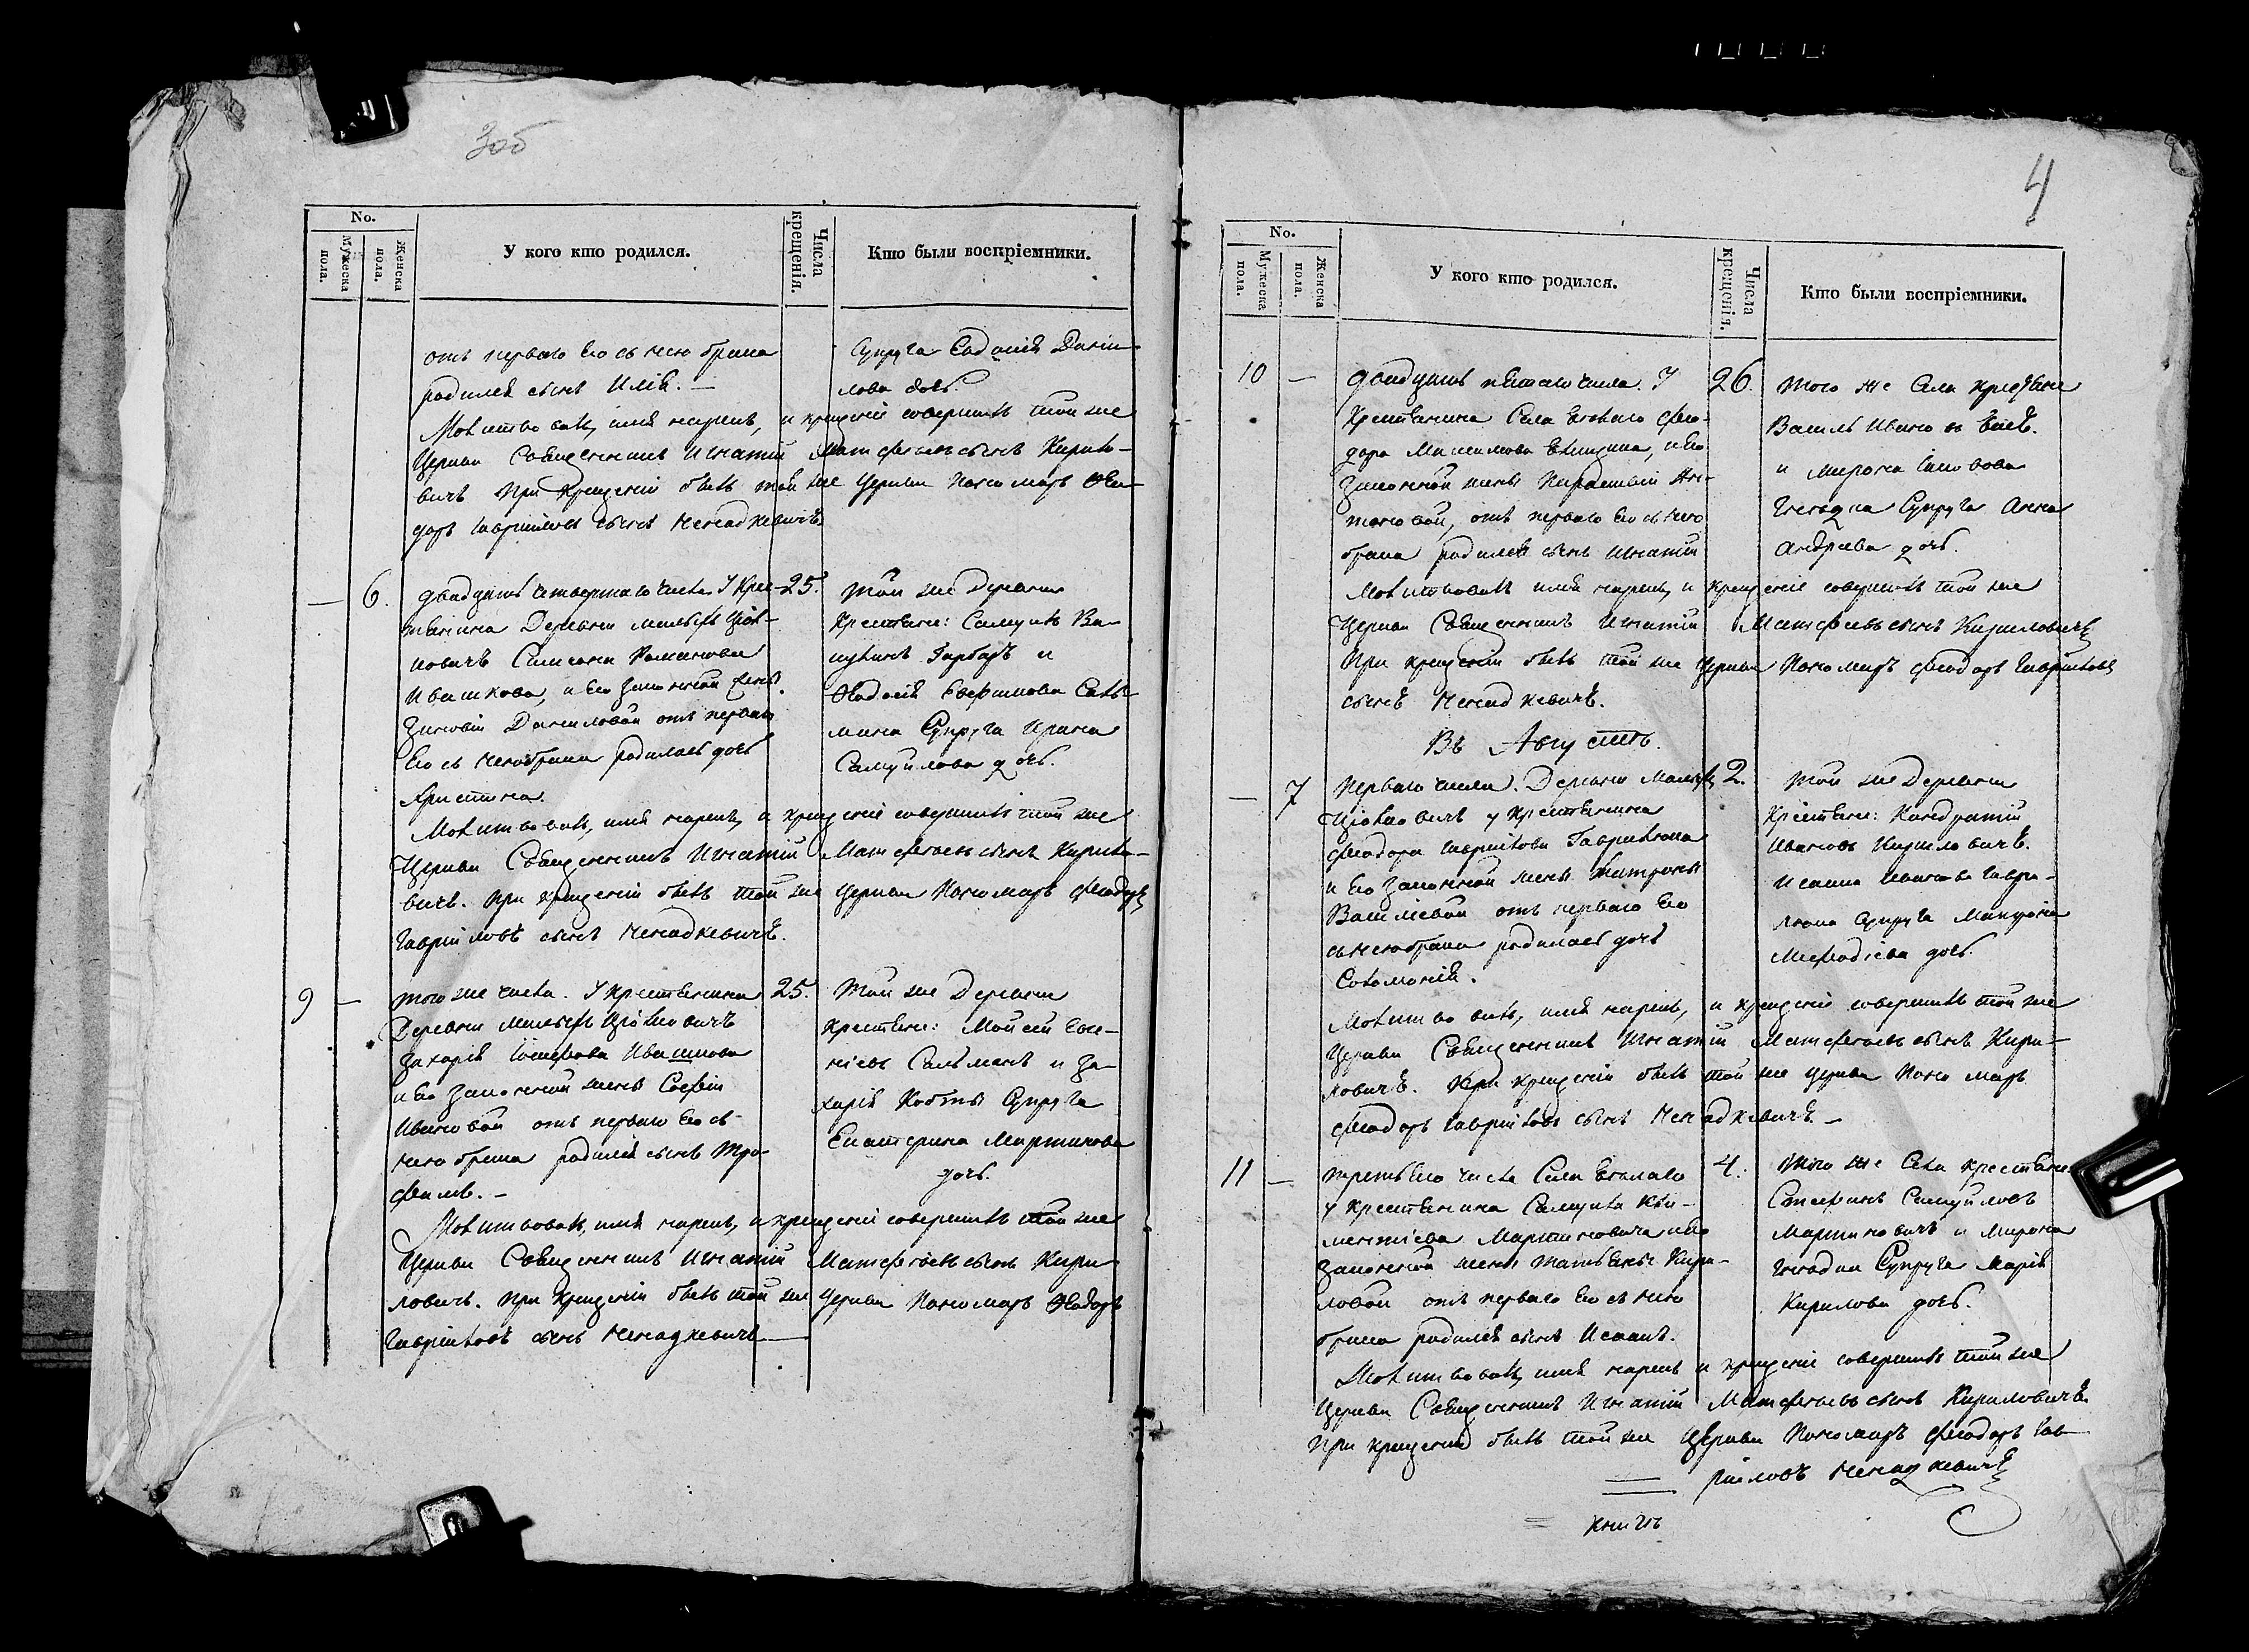 3об
No.
Мужеска пола.
Женска пола.
У кого кто родился.
Числа крещенія.
Кто были воспріемники.
отъ перваго Его съ нею брака
родился сынъ Илія. —
Супруга Евдокія Дани-
лова дочь.
Молитвовалъ, имя нарекъ, и крещеніе совершилъ той же
Церкви Священникъ Игнатій Матѳеевъ сынъ Кирило-
вичъ при крещеніи былъ той же Церкви Пономарь Ѳео-
доръ Гавріиловъ сынъ Ненадкевичъ.
— 6. двадцать четвертаго числа У Крес- 25.
тьянина Деревни
Симеона Романова
Ивашкова, и Его законной жены
Зиновіи Даниловой отъ перваго
Его съ нею брака родилась дочь
Христина.
Той же Деревни
Крестьяне: Самуилъ
Гарбаръ и
Супруга Ирина
Самуилова дочь.
Молитвовалъ, имя нарекъ, и крещеніе совершилъ той же
Церкви Священникъ Игнатій Матѳеевъ сынъ Кирило-
вичъ. При крещеніи былъ той же Церкви Пономарь Ѳеодоръ
Гавріиловъ сынъ Ненадкевичъ.
9 — того же числа. У крестьянина 25.
Деревни
Захарія Іосифова Ивашкова
и Его законной жены Софіи
Ивановой отъ перваго Его съ
нею брака родился сынъ Тро-
фимъ. —
Той же Деревни
крестьяне: Мойсей
и За-
харія Супруга
Екатерина Мартинова
дочь.
Молитвовалъ, имя нарекъ, и крещеніе совершилъ той же
Церкви Священникъ Игнатій Матѳеевъ сынъ Кири-
ловичъ. При крещеніи былъ той же Церкви Пономарь Ѳеодоръ
Гавріиловъ сынъ Ненадкевичъ —
4
No.
Мужеска пола.
Женска пола.
У кого кто родился.
Числа крещенія.
Кто были воспріемники.
10 — двадцать пятаго числа. У 26.
Крестьянина Села Ѳео-
дора Максимова и Его
законной жены Параскевіи Ан-
тоновой, отъ перваго Его съ нею
брака родился сынъ Игнатій
того же Села крестьяне
Василь
и Мирона
Супруга Анна
Андреева дочь.
Молитвовалъ имя нарекъ, и крещеніе совершилъ той же
Церкви Священникъ Игнатій Матѳеевъ сынъ Кириловичъ
При крещеніи былъ той же Церкви Пономарь Ѳеодоръ Гавріиловъ
сынъ Ненадкевичъ.
Въ Августѣ.
— 7 перваго числа. Деревни 2.
у Крестьянина
Ѳеодора Гавріилова
и Его законной жены Матроны
Василіевой отъ перваго Его
съ нею брака родилась дочь
Соломонія.
Той же Деревни
Крестьяне: Кондратій
Ивановъ Кириловичъ.
Исаака Иванова Гаври-
люка Супруга
Меѳодіева дочь.
Молитвовалъ, имя нарекъ, и крещеніе совершилъ той же
Церкви Священникъ Игнатій Матѳеевъ сынъ Кири-
ловичъ. При крещеніи былъ той же Церкви Пономарь
Ѳеодоръ Гавріиловъ сынъ Ненадкевичъ. —
11 — третьяго числа Села 4.
у крестьянина Самуила Кли-
ментіева Мартиновича и Его
законной жены Татьяны Кири-
ловой отъ перваго Его съ нею
брака родился сынъ Исаакъ.
Того же Села крестьяне
Стефанъ Самуиловъ
Мартиновичъ и Мирона
Супруга Марія
Кирилова дочь.
Молитвовалъ, имя нарекъ и крещеніе совершилъ той же
Церкви Священникъ Игнатій Матѳеевъ сынъ Кириловичъ
При крещеніи былъ той же Церкви Пономарь Ѳеодоръ Гав-
ріиловъ Ненадкевичъ